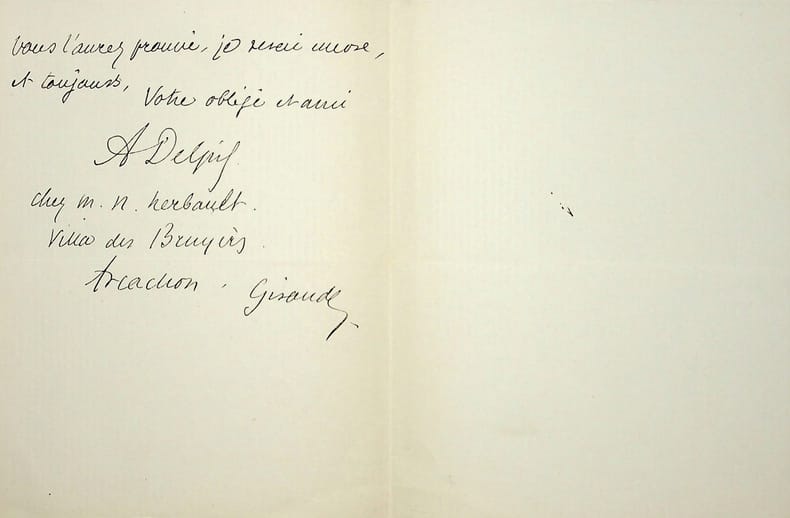 vous l'aurez prouvé, je serai encore,
et toujours,
Votre obligé et ami
A Delpit
chez M. N. Herbault.
Villa des Bruyères
Arcachon. Gironde